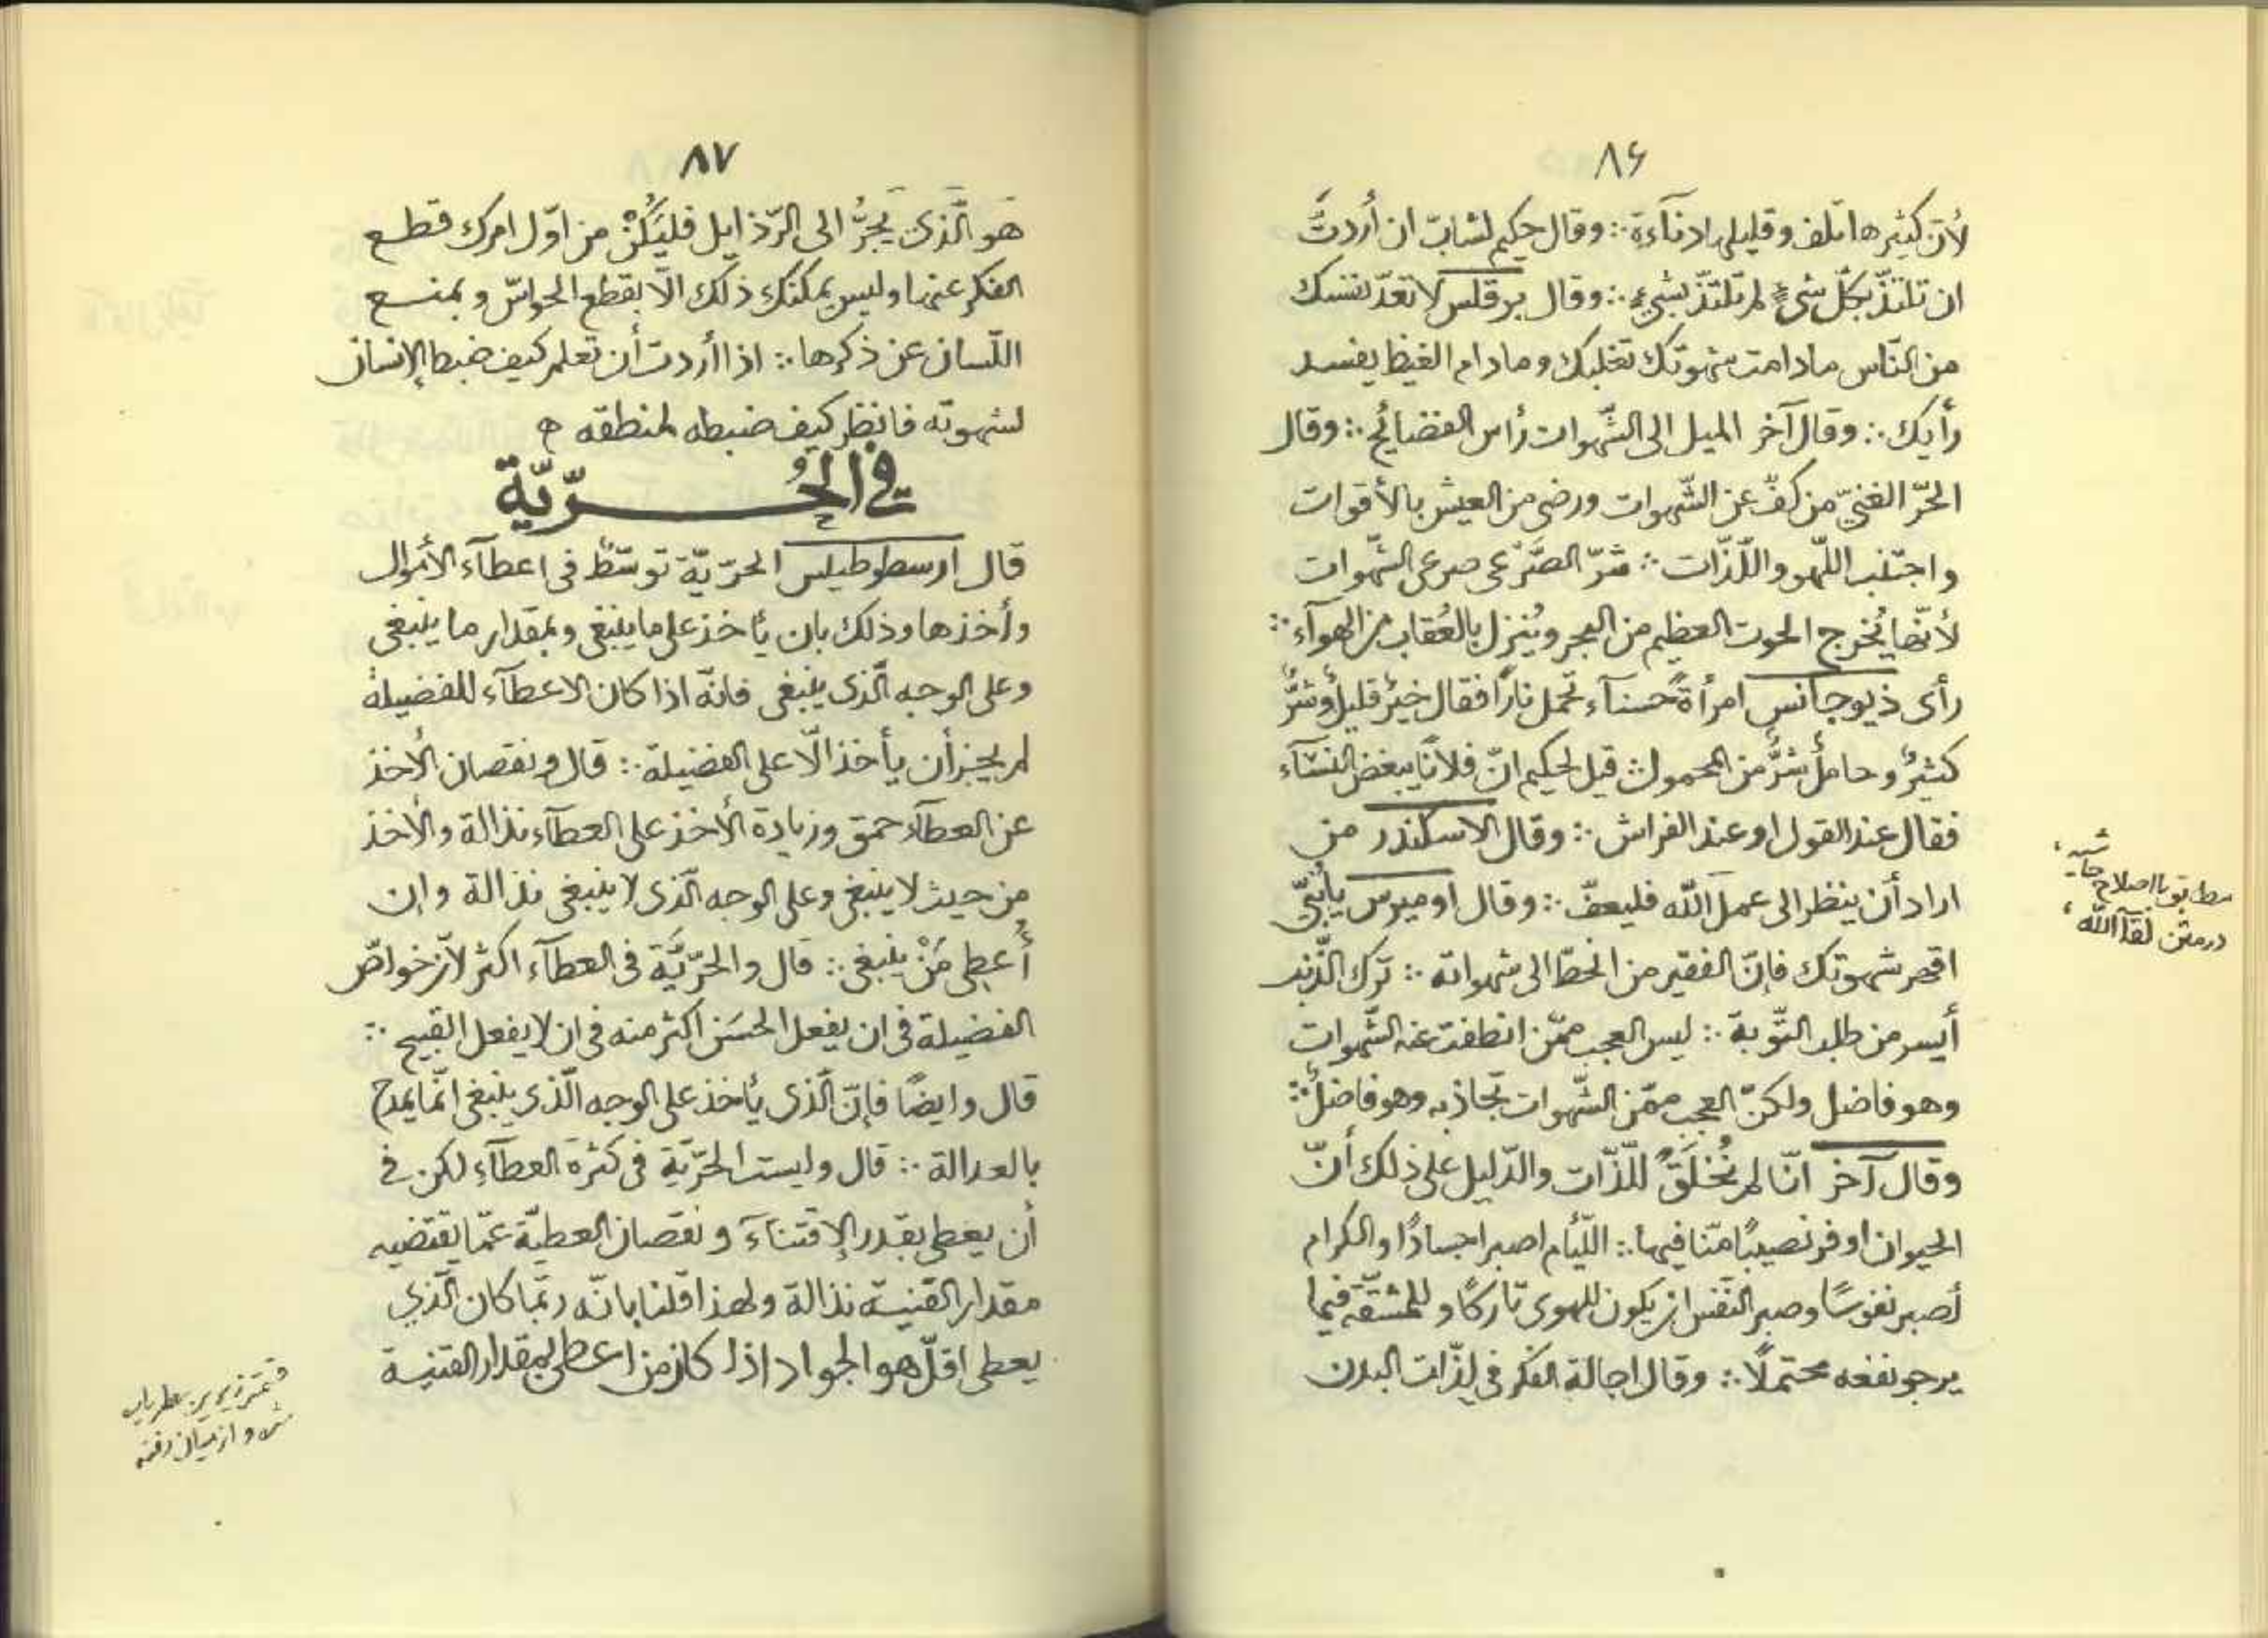 ٨۶
لأنّ كثيرها تلف وقليلها دناءة ∴ وقال حكيم لشابّ ان أردتَ
ان تلتذّ بكلّ شئٍ لم تلتذّ بشيءٍ ∴ وقال برقلس لا تعدّ نفسك
من النّاس مادامت شهوتك تغلبك ومادام الغيظ يفسد
رأيك ∴ وقال آخر الميل الى الشّهوات رأس الفضائح ∴ وقال
الحرّ الغنيّ من كفّ عن الشّهوات ورضى من العيش بالأقوات
واجتنب اللّهو واللّذّات ∴ شرّ الصَّرْعى صرعى الشّهوات
لأنّها يُخرج الحوت العظيم من البحر ويُنزل بالعُقاب من الهوآء ∴
رأى ذيوجانس امرأةً حسنآء تحمل نارًا فقال خيرٌ قليلٌ وشرٌّ
كثيرٌ وحاملٌ شرٌّ من المحمول ∴ قيل لحكيم انّ فلانًا يبغض النسآء
فقال عند القول او عند الفراش ∴ وقال الاسكندر من
اراد أن ينظر الى عمل اللّه فليعفّ ∴ وقال اوميرس يأبنيّ
اقهر شهوتك فإنّ الفقير من انحطّ الى شهواته ∴ ترك الذّنب
أيسر من طلب التّوبة ∴ ليس العجب ممّن انطفت عنه الشّهوات
وهو فاضل ولكنّ العجب ممّن الشّهوات تجّاذبه وهو فاضلٌ ∴
وقال آخر انّا لم نُخلَقْ للّذّات والدّليل على ذلك أنّ
الحيوان اوفر نصيبًا منّا فيها ∴ اللّئام اصبر اجسادًا والكرام
أصبر نفوسًا وصبر النّفس ان يكون للهوى تاركًا وللمشقّة فيما
يرجو نفعه محتملًا ∴ وقال اجالة الفكر فى لذّات البدن
حاشيه
مطابق با اصلاح
در متن لقآ اللّه
٨٧
هو الّذى يجرُّ الى الرّذايل فليَكُنْ من اوّل امرك قطع
الفكر عنها وليس يمكنك ذلك الّا بقطع الحواسّ وبمنع
اللّسان عن ذكرها ∴ اذا أردت أن تعلم كيف ضبط الإنسان
لشهوته فانظر كيف ضبطه لمنطقه
فى الحُرّيّة
قال ارسطوطيلس الحرّيّة توسّط فى اعطآء الأموال
وأخذها وذلك بان يأخذ على ما ينبغى وبمقدار ما ينبغى
وعلى الوجه الّذى ينبغى فانّه اذا كان الاعطآء للفضيلة
لم يجز أن يأخذ الّا على الفضيلة ∴ قال ونقصان الأخذ
عن العطآء حمق وزيادة الأخذ على العطآء نذالة والأخذ
من حيث لا ينبغى وعلى الوجه الّذى لا ينبغى نذالة وإن
أُعطِى مَنْ ينبغى ∴ قال والحرّيَّة فى العطآء اكثر لأنّ خواصّ
الفضيلة فى ان يفعل الحسَن اكثر منه فى ان لا يفعل القبيح ∴
قال وايضًا فإنّ الّذى يأخذ على الوجه الّذى ينبغى انّما يمدح
بالعدالة ∴ قال وليست الحرّيّة فى كثرة العطآء لكن فى
أن يعطى بقدر الإقتنآء ونقصان العطيّة عمّا يقتضيه
مقدار القنية نذالة ولهذا قلنا بانّه ربّما كان الّذي
يعطى اقلّ هو الجواد اذا كان من اعطى بمقدار القنية
و از ميان رفته